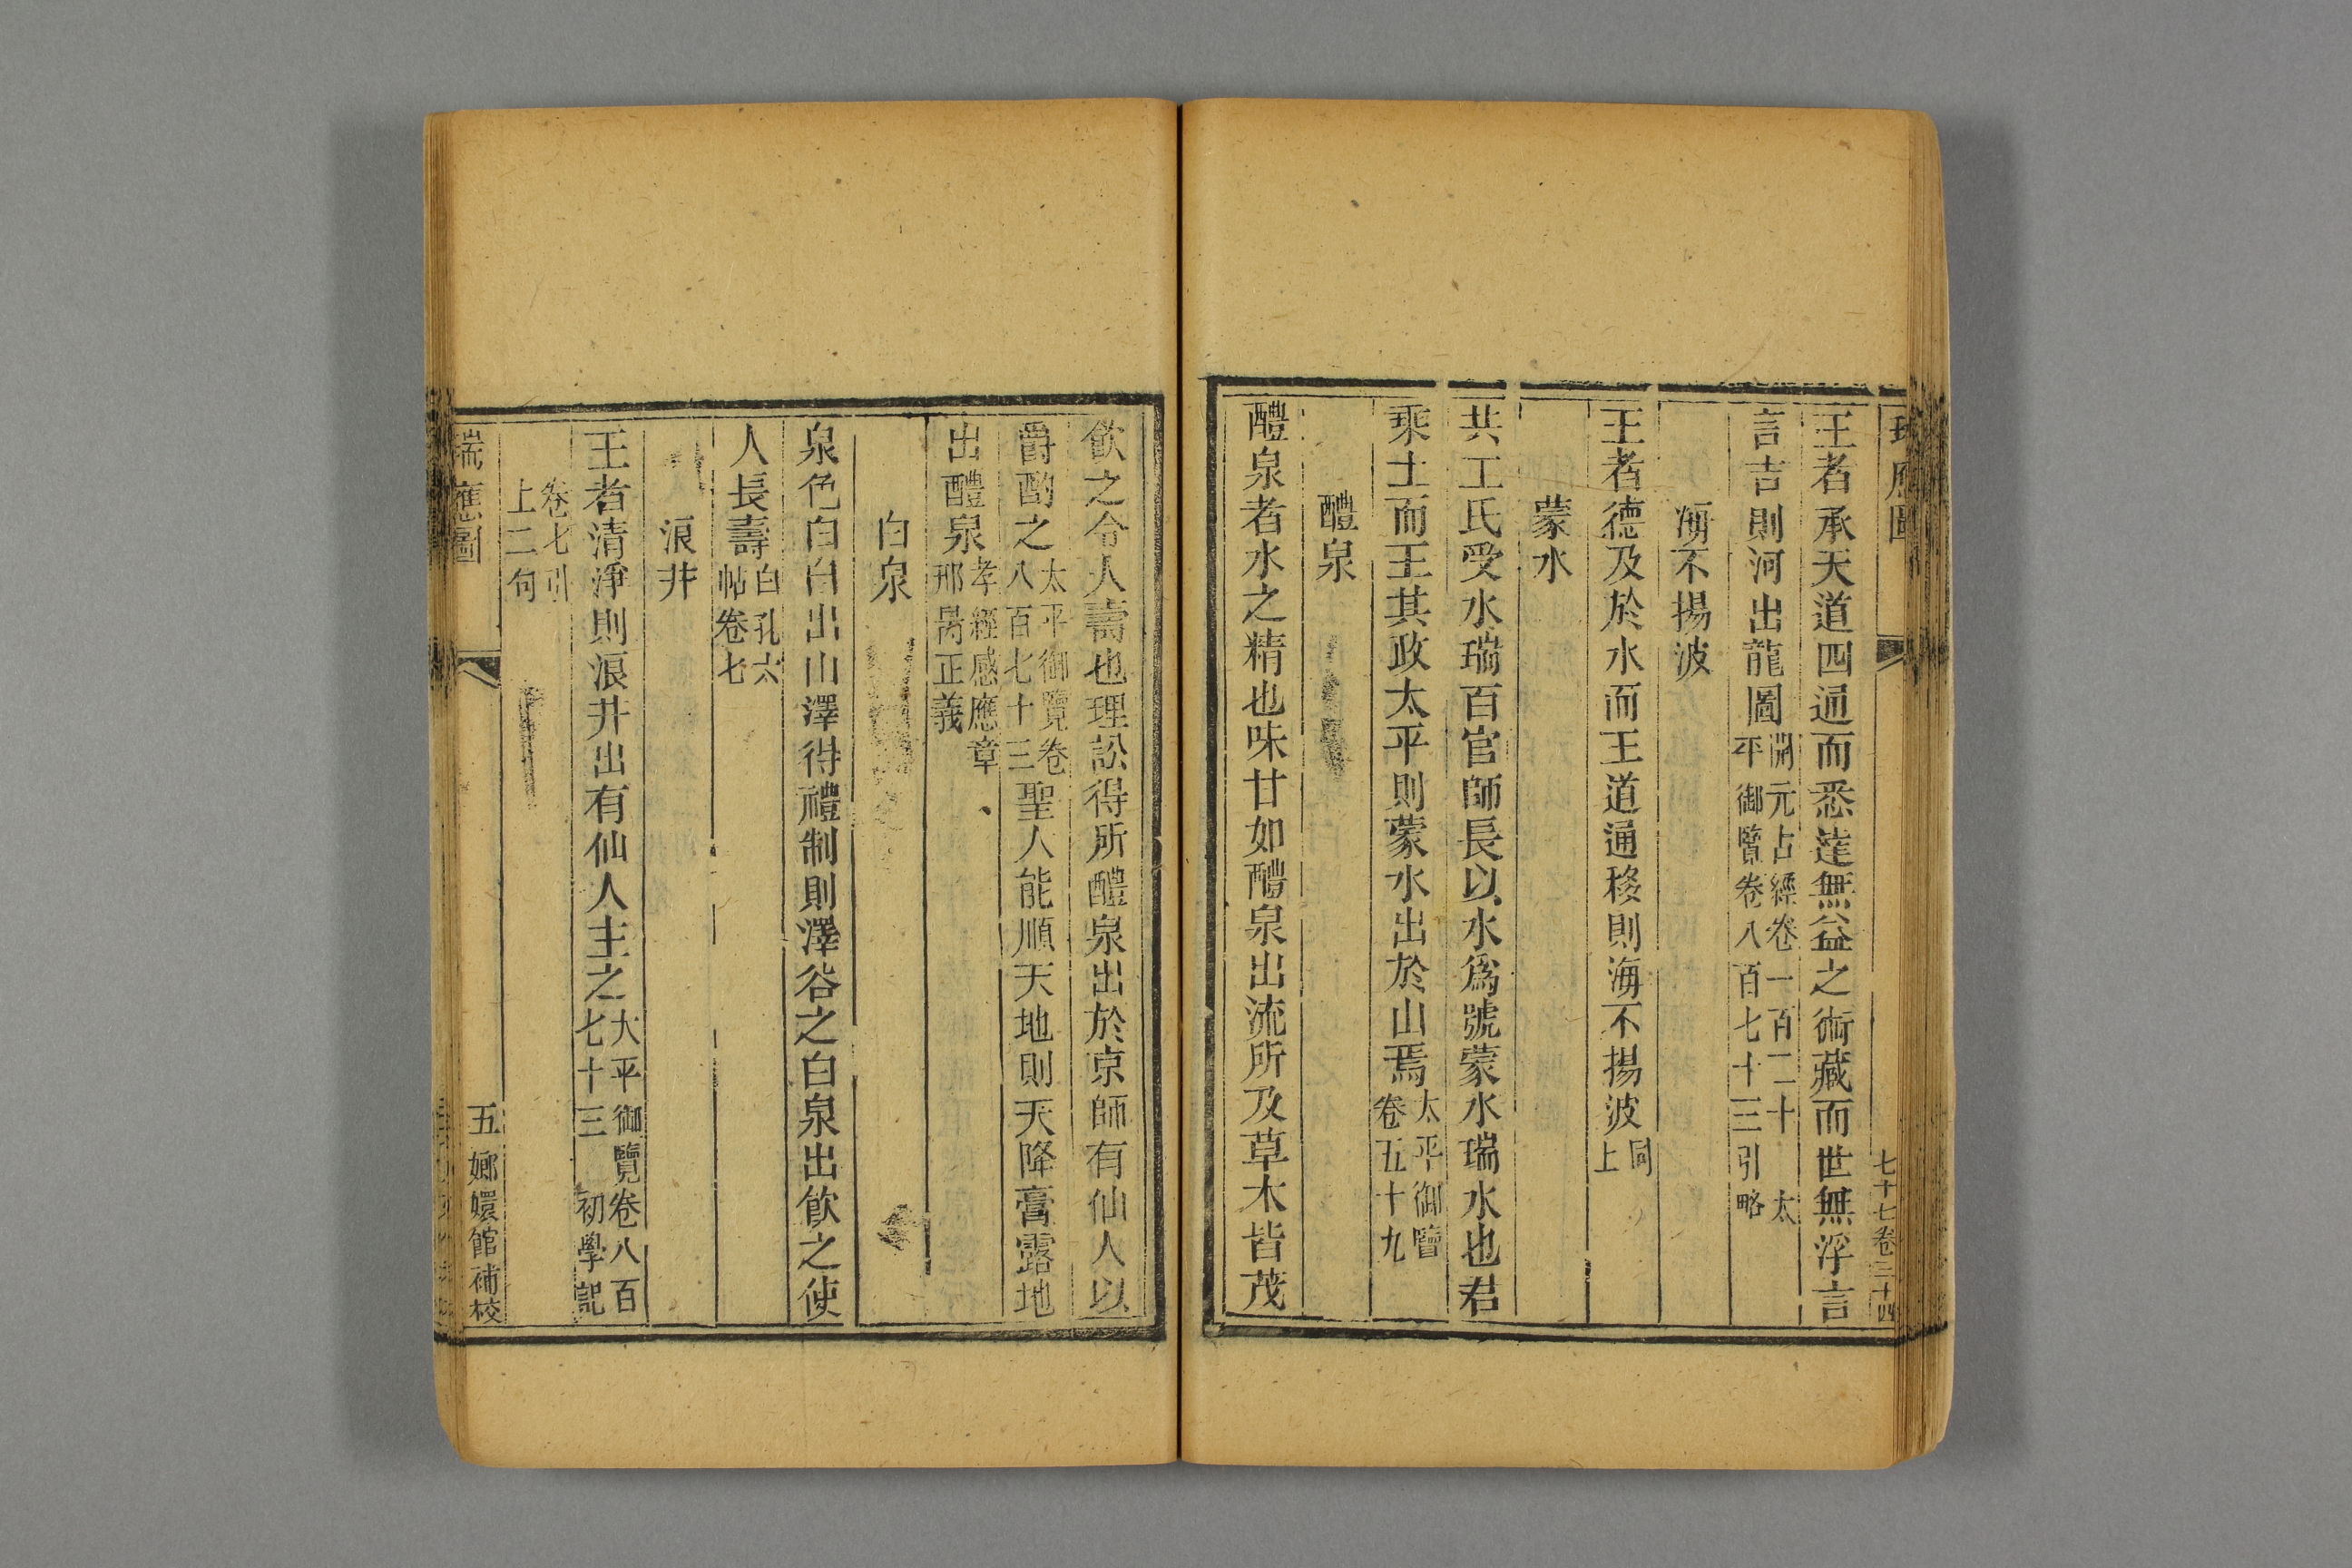 瑞應圖 七十七卷三十四
王者承天道四通而悉達無益之術藏而世無浮言
言吉則河出龍圖開元占經卷一百二十 太平御覽卷八百七十三引略
海不揚波
王者德及於水而王道通移則海不揚波同上
蒙水
共工氏受水瑞百官師長以水爲號蒙水瑞水也君
乘土而王其政太平則蒙水出於山焉太平御覽卷五十九
醴泉
醴泉者水之精也味甘如醴泉出流所及草木皆茂
飮之令人壽也理訟得所醴泉出於京師有仙人以
爵酌之太平御覽卷八百七十三聖人能順天地則天降膏露地
出醴泉孝經感應章邢昺正義
白泉
泉色白自出山澤得禮制則澤谷之白泉出飮之使
人長壽白孔六帖卷七
浪井
王者清淨則浪井出有仙人主之太平御覽卷八百七十三 初學記
卷七引上二句
瑞應圖 五 嫏嬛館補校